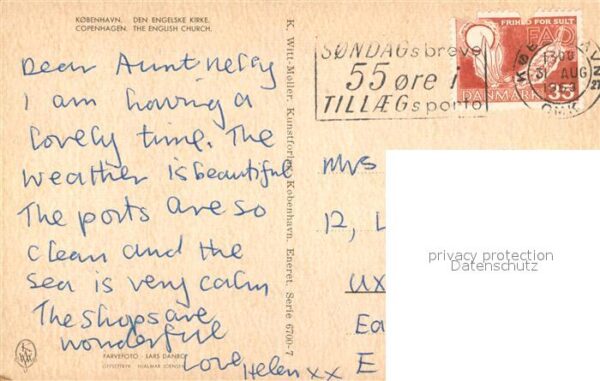 KØBENHAVN. DEN ENGELSKE KIRKE.
COPENHAGEN. THE ENGLISH CHURCH.
Dear Aunt Nelly
I am having a
lovely time. The
weather is beautiful
The ports are so
clean and the
sea is very calm
The shops are
wonderful
Love Helen xx
FARVEFOTO - LARS
HJALMAR
K. Witt-Møller. Kunstforlag. København. Eneret. Serie 6700-7
SØNDAGsbreve
55 øre i
TILLÆGsporto
FRIHED FOR SULT
FAO
DANMARK 35
31 AUG
Mrs
12, L
UX
Ea
E
privacy protection
Datenschutz